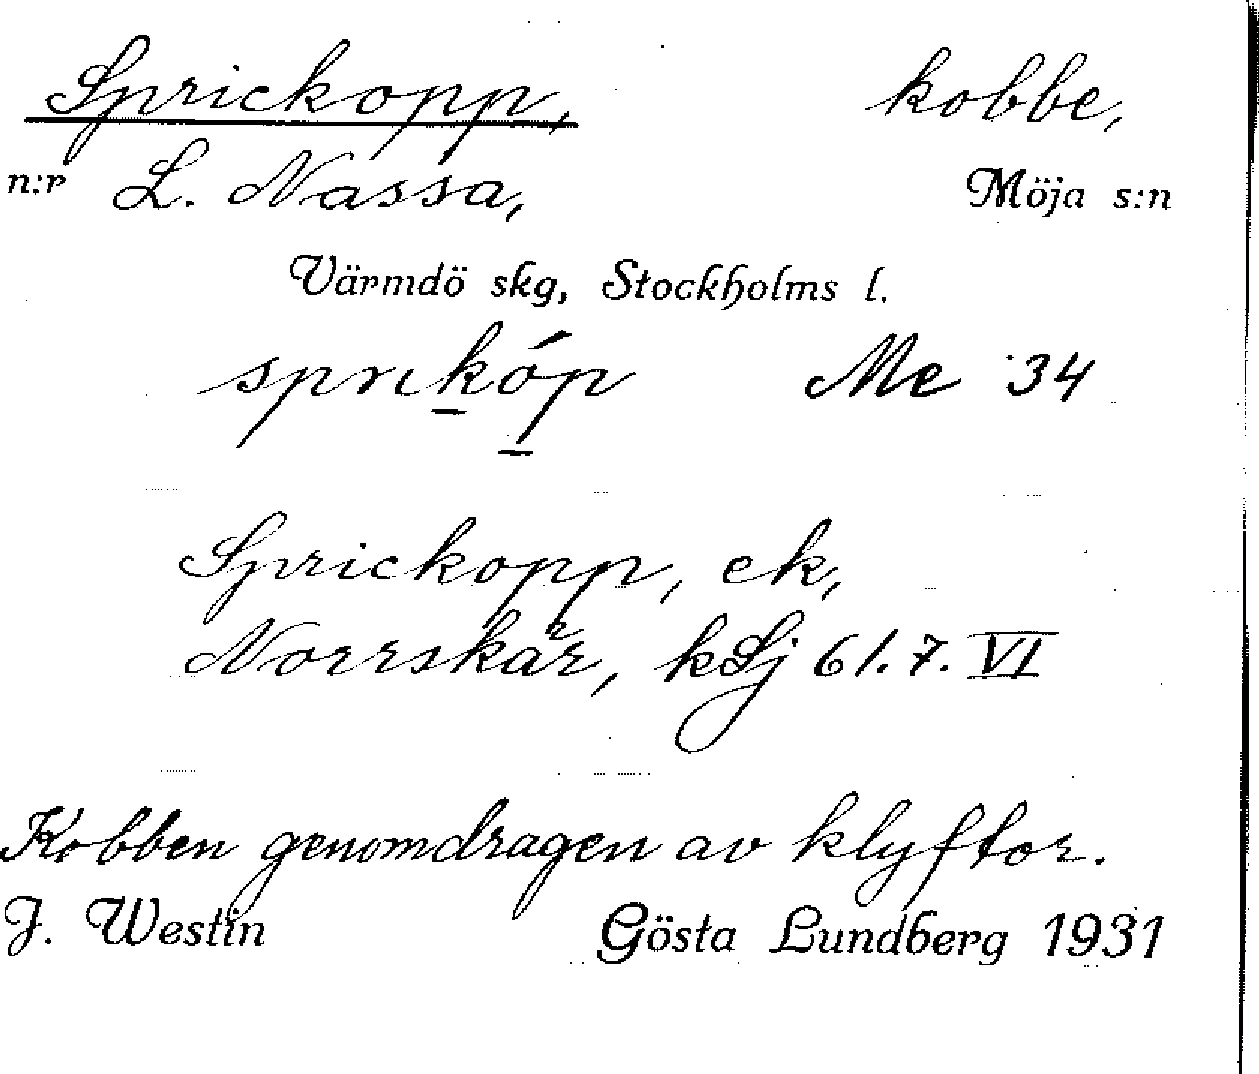 Sprickopp, kobbe,
n:r L. Nassa, Möja s:n
Värmdö skg, Stockholms l.
sprıkóp Me 34
Sprickopp, ek,
Norrskär, kSj 61.7. VI
Kobben genomdragen av klyftor.
J. Westin Gösta Lundberg 1931